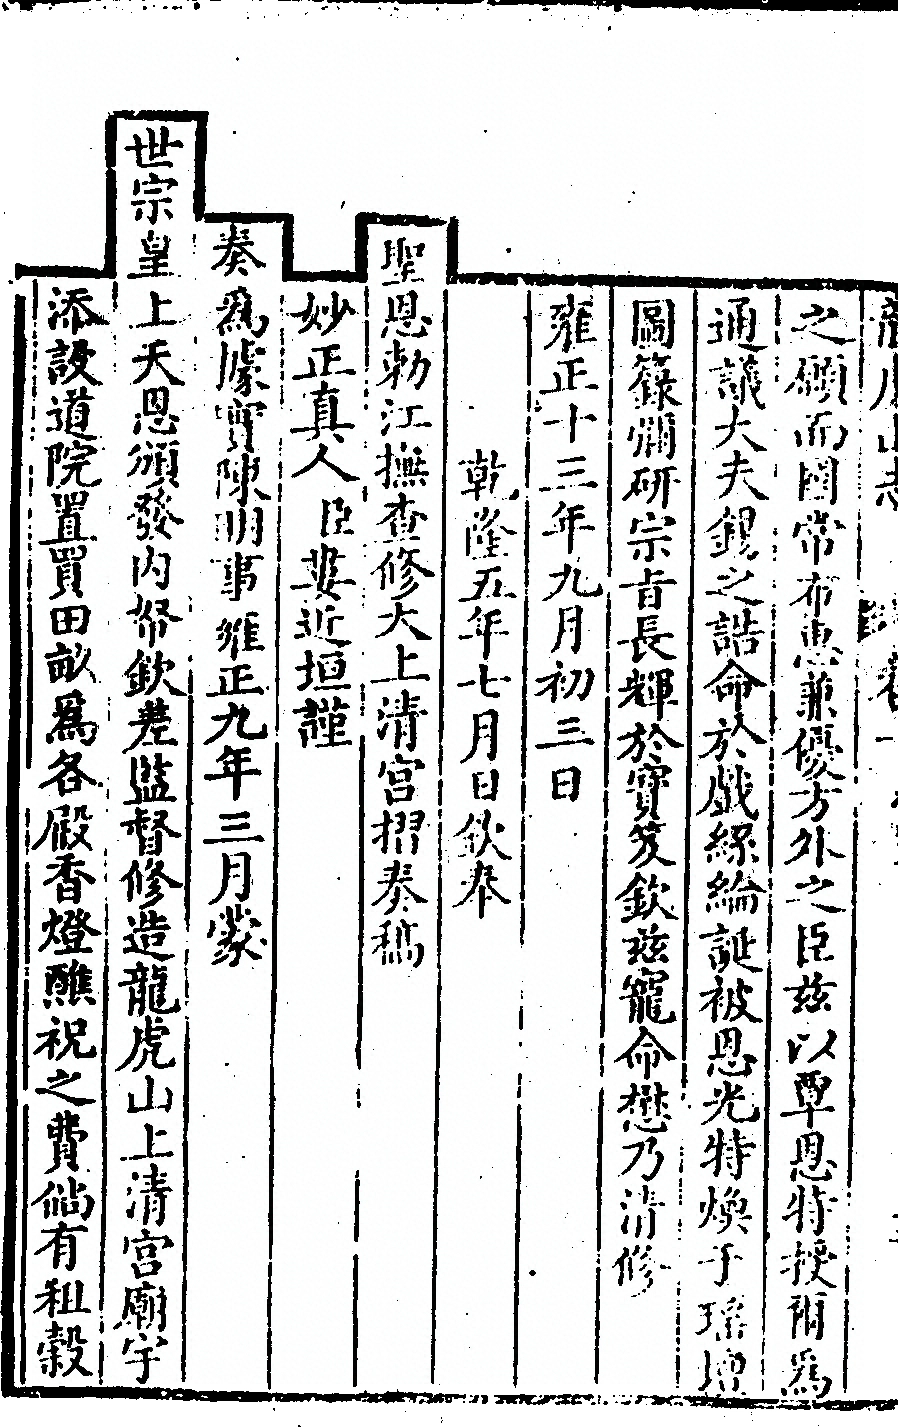 龍虎山志
之願而國常布惠兼優方外之臣茲以覃恩特授爾為
通議大夫錫之誥命於戲絲綸誕被恩光特煥于瑤壇
圖籙彌研宗旨長輝於寶笈欽茲寵命懋乃清修
雍正十三年九月初三日
乾隆五年七月日欽奉
聖恩勅江撫查修大上清宮摺奏稿
妙正真人臣婁近垣謹
奏為據實陳明事雍正九年三月蒙
世宗皇上天恩頒發內帑欽差監督修造龍虎山上清宮廟宇
添設道院置買田畝爲各殿香燈醮祝之費佔有租穀